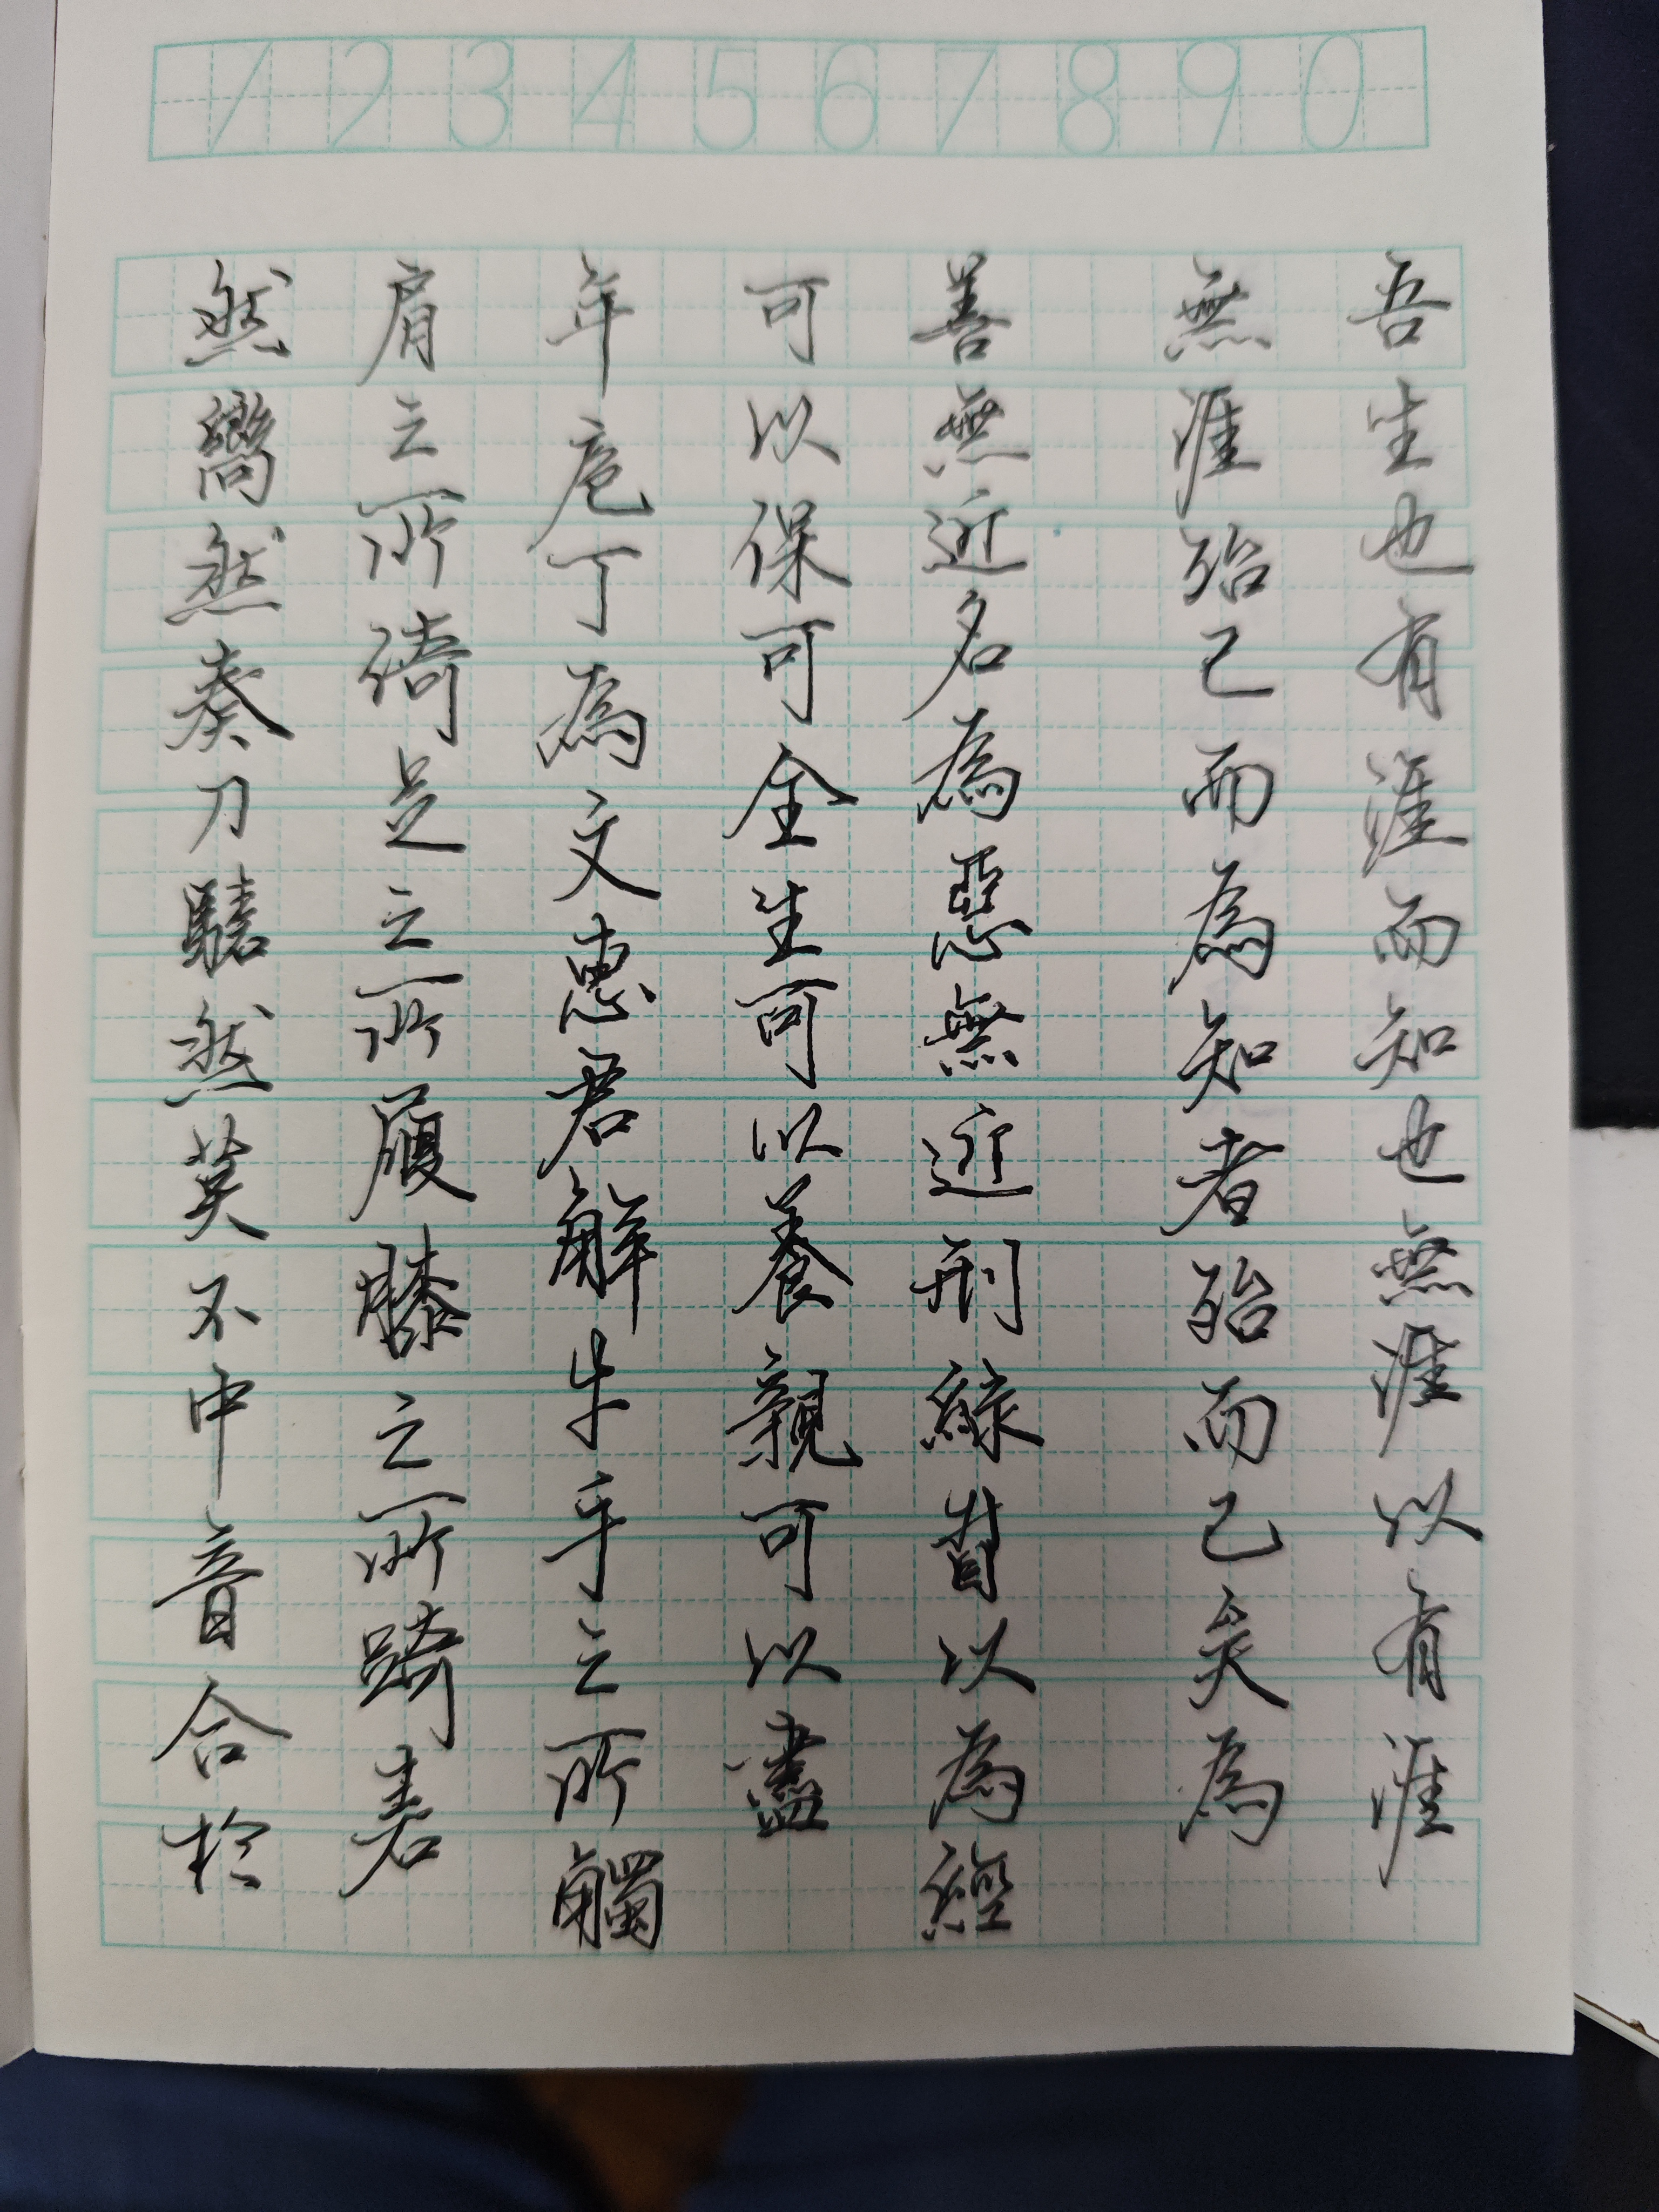 1 2 3 4 5 6 7 8 9 0
吾生也有涯而知也無涯以有涯
無涯殆已而為知者殆而已矣為
善無近名為惡無近刑緣督以為經
可以保可全生可以養親可以盡
年庖丁為文惠君解牛手之所觸
肩之所倚足之所履膝之所踦砉
然嚮然奏刀騞然莫不中音合於